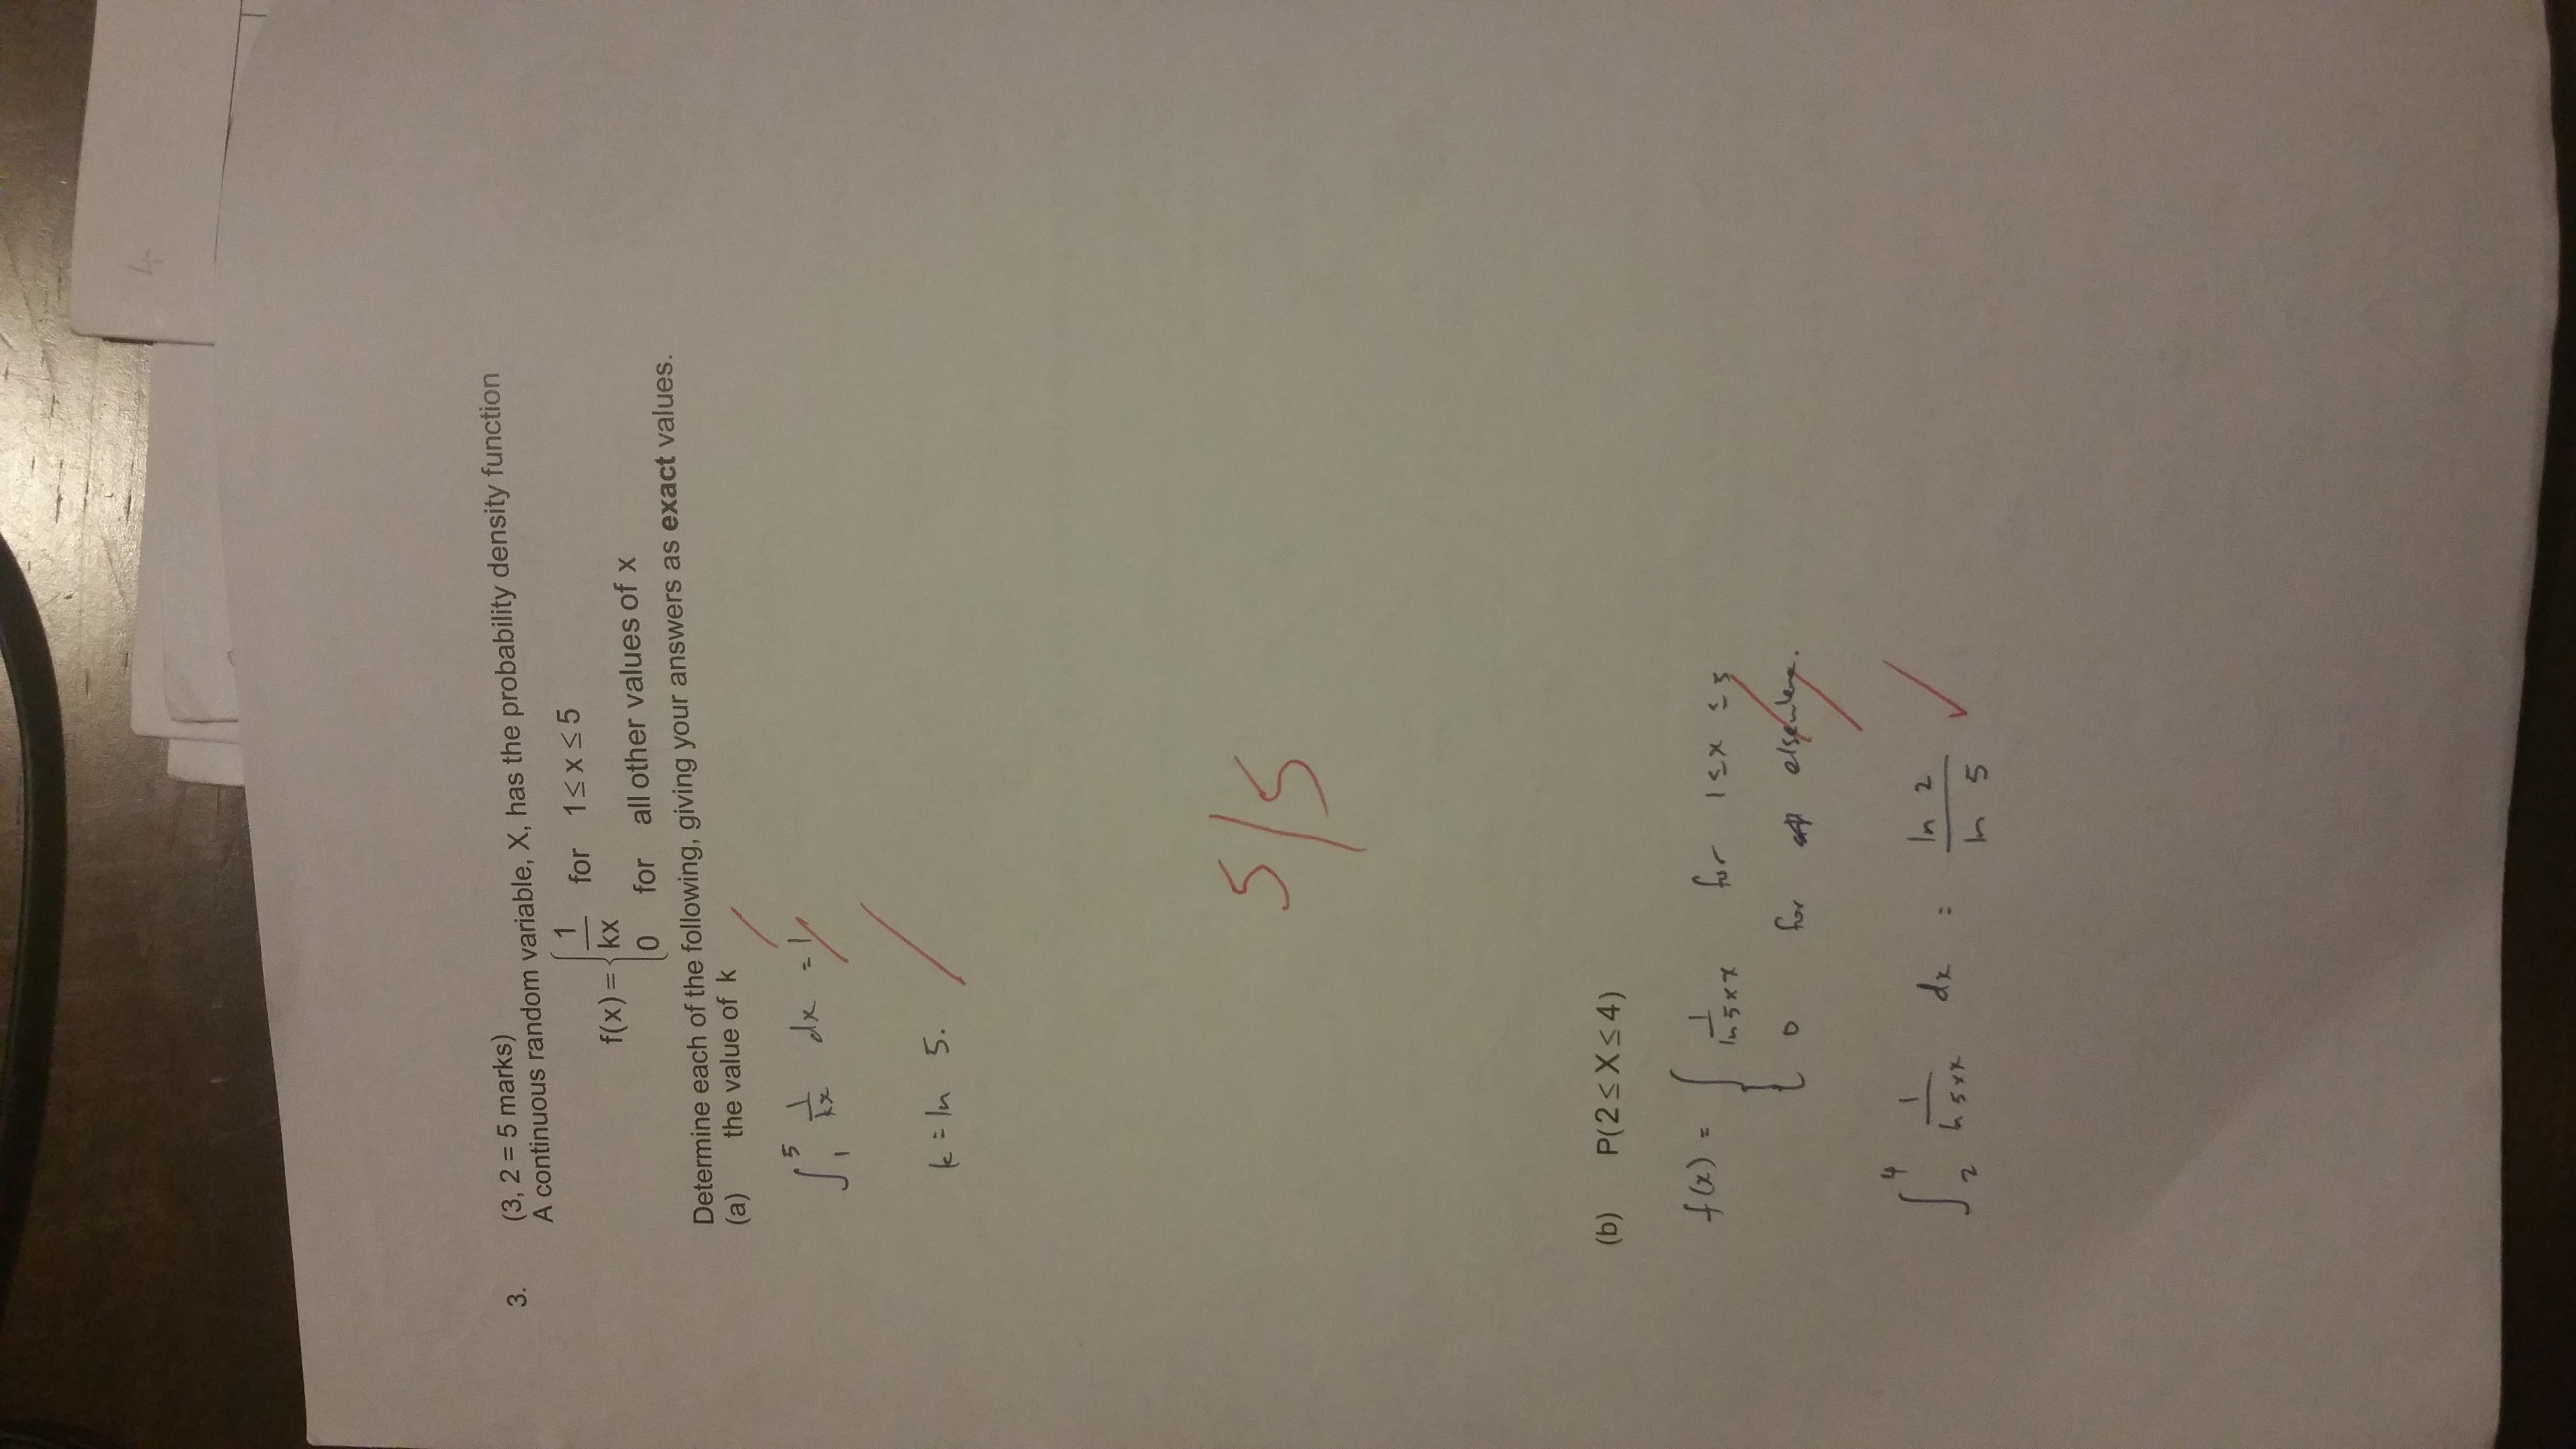 4
3. (3, 2 = 5 marks)
A continuous random variable, X, has the probability density function
f(x) = { 1/kx for 1 ≤ x ≤ 5
0 for all other values of x
Determine each of the following, giving your answers as exact values.
(a) the value of k
∫₁⁵ 1/kx dx = 1
k = ln 5.
5/5
(b) P(2 ≤ X ≤ 4)
f(x) = { 1/ln 5 × x for 1 ≤ x ≤ 5
0 for elsewhere.
∫₂⁴ 1/ln 5 × x dx = ln 2/ln 5 ✓